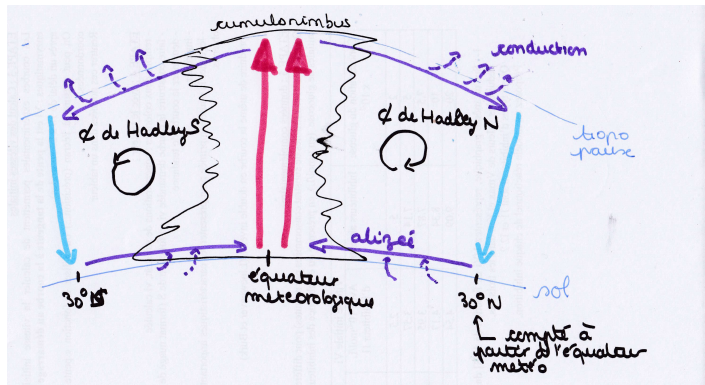 cumulonimbus
conduction
¢ de Hadley S
¢ de Hadley N
tropo
pause
alizée
30°S
équateur
météorologique
30°N
sol
compté à
partir de l'équateur
météo